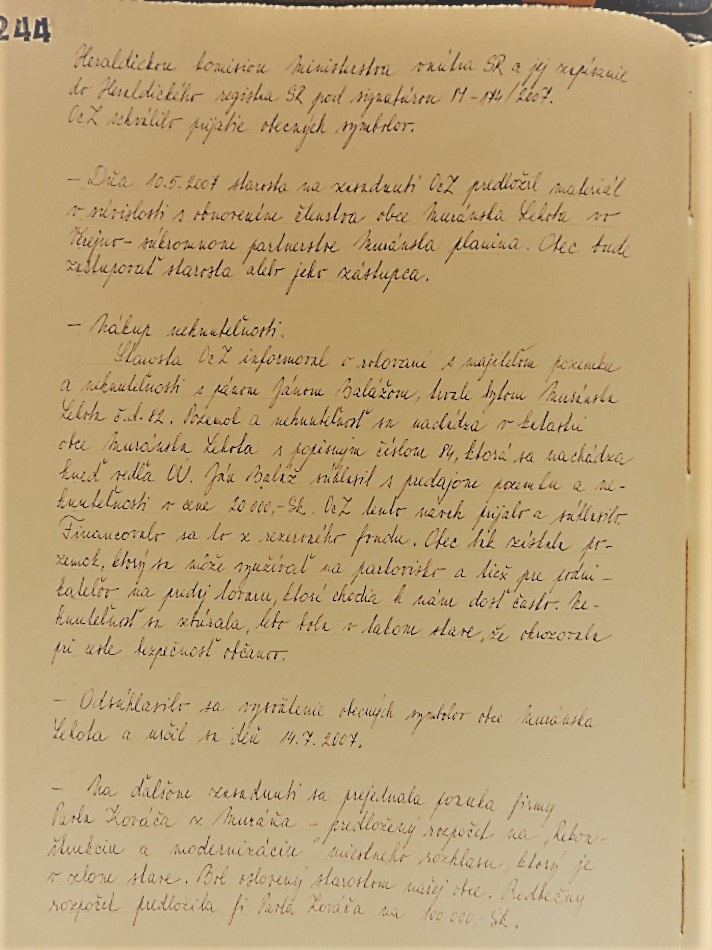 244
Heraldickou komisiou Ministerstva vnútra SR a jej zapísanie
do Heraldického registra SR pod signatúrou M-174/2007.
OcZ schválilo prijatie obecných symbolov.
- Dňa 10.5.2007 starosta na zasadnutí OcZ predložil materiál
v súvislosti s obnovením členstva obce Muránska Lehota vo
Verejno-súkromnom partnerstve Muránska planina. Obec bude
zastupovať starosta alebo jeho zástupca.
- Nákup nehnuteľnosti.
Starosta OcZ informoval o rokovaní s majiteľom pozemku
a nehnuteľnosti s pánom Jánom Balážom, trvale bytom Muránska
Lehota č.d. 82. Pozemok a nehnuteľnosť sa nachádza v katastri
obce Muránska Lehota s popisným číslom 84, ktorá sa nachádza
hneď vedľa Ján Baláž súhlasil s predajom pozemku a ne-
hnuteľnosti v cene 20 000,- Sk. OcZ tento návrh prijalo a súhlasilo.
Financovalo sa to z rezervného fondu. Obec tak získala po-
zemok, ktorý sa môže využívať na parkovisko a tiež pre podni-
kateľov na predaj tovaru, ktorí chodia k nám dosť často. Ne-
hnuteľnosť sa zbúrala, lebo bola v takom stave, že ohrozovala
pri ceste bezpečnosť občanov.
- Odsúhlasilo sa vysvätenie obecných symbolov obce Muránska
Lehota a určil sa deň 14.7.2007.
- Na ďalšom zasadnutí sa prejednala ponuka firmy
Pavla Kováča z Muráňa - predložený rozpočet na „Rekon-
štrukciu a modernizáciu" miestneho rozhlasu, ktorý je
v zlom stave. Bol oslovený starostom našej obce. Predbežný
rozpočet predložila fi Pavla Kováča na 100 000,- Sk.